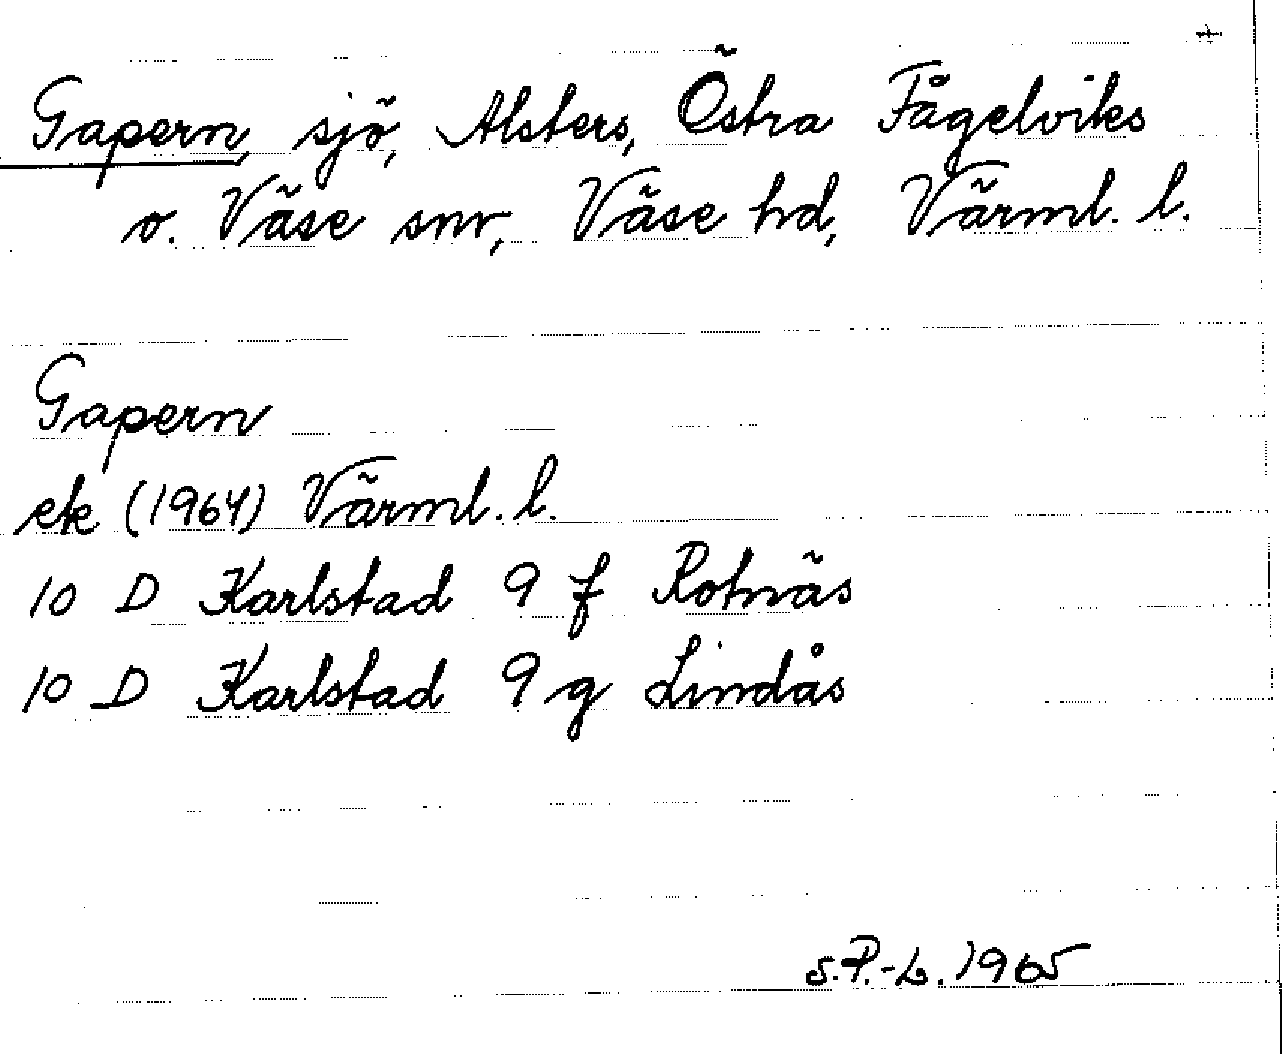 Gapern, sjö, Alsters, Östra Fågelviks
o. Väse snr, Väse hd, Värml. l.
Gapern
ek (1964) Värml. l.
10 D Karlstad 9 f Rotnäs
10 D Karlstad 9 g Lindås
S.P.-L. 1965